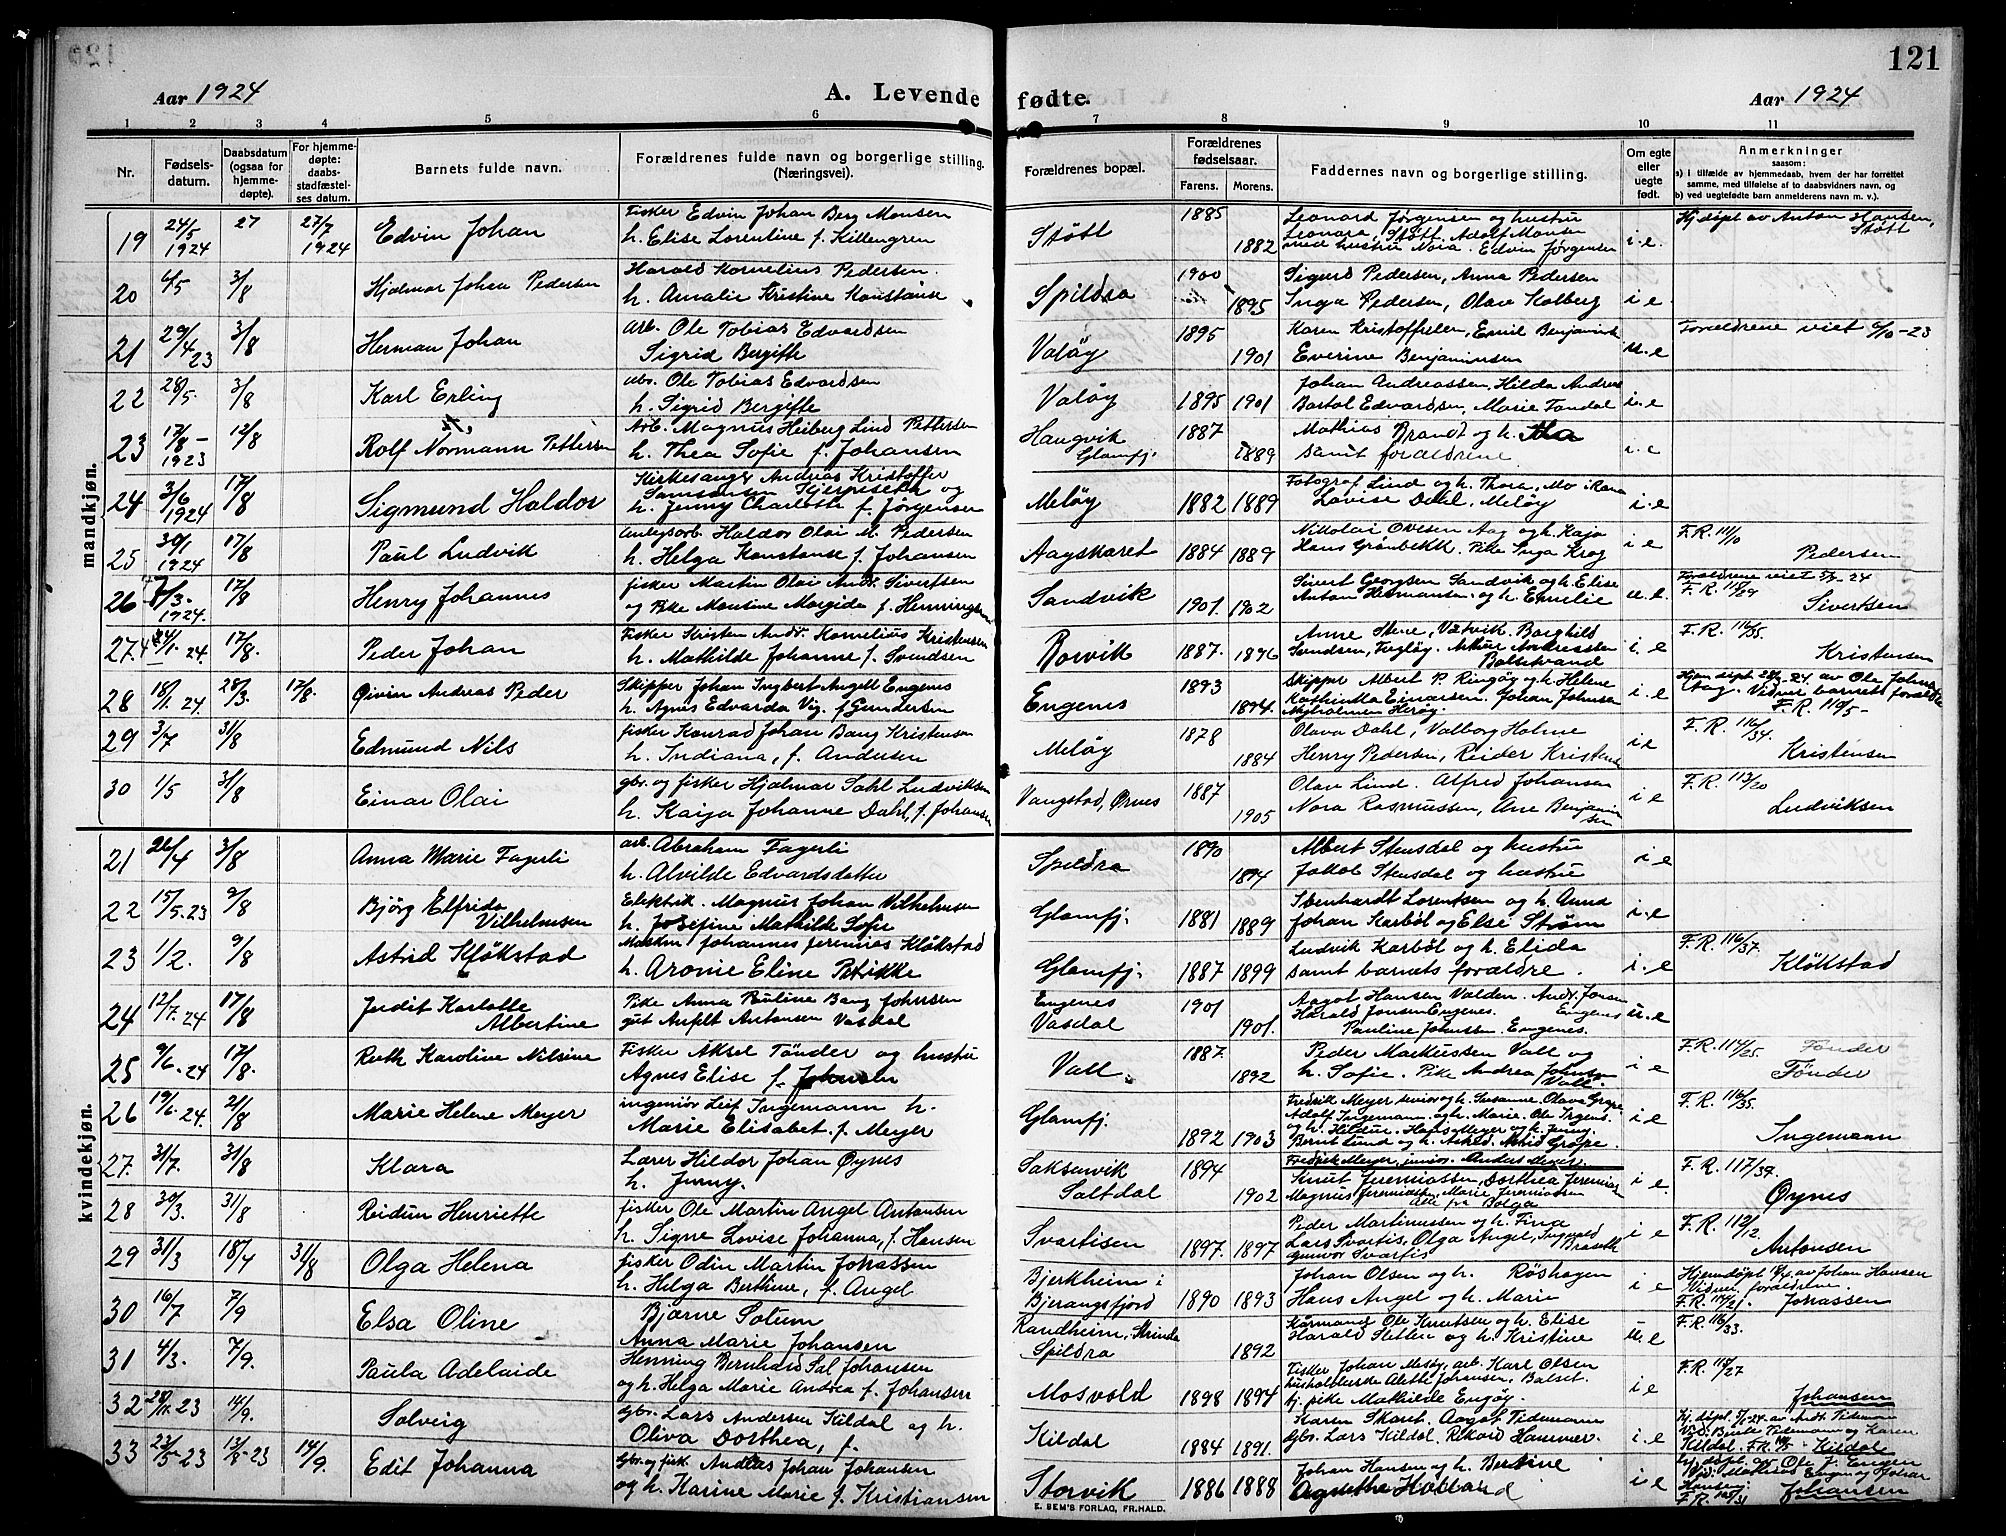 121
Aar 1924
A. Levende fødte.
Aar 1924
1 2 3 4 5 6 7 8 9 10 11
Nr. Fødsels-datum. Daabsdatum (ogsaa for hjemme-døpte). For hjemme-døpte: daabs-stadfæstel-ses datum. Barnets fulde navn. Forældrenes fulde navn og borgerlige stilling. (Næringsvei). Forældrenes bopæl. Forældrenes fødselsaar. Farens. Morens. Faddernes navn og borgerlige stilling. Om egte eller uegte født. Anmerkninger saasom:
a) i tilfælde av hjemmedaab, hvem der har forrettet samme, med tilføielse af to daabsvidners navn, og
b) ved uegtefødte barn anmelderens navn m. v.)
mandkjøn.
19 24/5 1924 27 27/7 1924 Edvin Johan Fisker Edvin Johan Berg Monsen Støtt 1885 Leonard Jørgensen og hustru Hj.døpt av Anton Hansen, Støtt
h. Elise Lorentine f. Killengren 1882 Leonara, Støtt. Adolf Monsen i.e.
med hustru Nora. Edvin Jørgensen
20 4/5 3/8 Hjalmar Johan Pedersen Harald Kornelius Pedersen. Spildra 1900 Sigurd Pedersen, Anna Pedersen
h. Amalie Kristine Konstanse 1895 Inga Pedersen, Olav Kolberg i e.
21 29/4 23 3/8 Herman Johan arb. Ole Tobias Edvardsen Valøy 1895 Karen Kristoffersen, Emil Benjamins Foreldrene viet 6/10-23
Sigrid Bergitte 1901 Everine Benjaminsen u.e
22 28/5. 3/8 Karl Erling arb. Ole Tobias Edvardsen Valøy 1895 1901 Johan Andreassen, Hilda Andreas i.e
h. Sigrid Bergitte Bartol Edvardsen, Marie Tondal
23 17/8- 1923 12/8 Rolf Normann Pettersen Arb. Magnus Heiberg Lind Pettersen Haugvik Glamfj. 1887 Mathias Brandt og h. Thea
h. Thea Sofie f. Johansen 1889 samt foraldrene i.e
24 3/6 1924 17/8 Sigmund Haldor Kirkesanger Andreas Kristoffer Meløy 1882 1889 Fotograf Lind og h. Thora, Mo i Rana i-e
Samsonsen og Lovise Dahl, Meløy
h. Jenny Charlotte f. Jørgensen
25 30/1 1924 17/8 Paul Ludvik anlegsarb. Haldor Olai M. Pedersen Aagskaret 1884 1889 Nikolai Ovesen Aag og h. Kaja i e F.R. 111/10
h. Helga Konstanse f. Johansen Hans Grønbekk. Pike Inga Krog Pedersen
26 7/3- 1924. 17/8 Henry Johannes fisker Martin Olai Andr. Sivertsen Sandvik 1901. 1902 Sivert Georgsen Sandvik og h. Elise u.e. Foreldrene viet 5/9-24
og Pike Monsine Margida f. Henningsen Anton Hermansen og h. Emelie F.R. 115/29 Sivertsen
27. 24/1. 24. 17/8. Peder Johan Fisker Kristen Andr. Kornelius Kristensen Rorvik 1887. 1896 Anne Stene, Vatvik. Borghild i. e F.R. 116/35.
h. Mathilde Johanne f. Svendsen Svendsen, Fugløy. Arthur Andreassen Kristensen
28 18/1. 24. 28/3. 17/8. Øivin Andreas Peder Skipper Johan Ingbert Angell Engenes Engenes 1893 Skipper Albert P. Ringøy og h. Helene i e Hjem.døpt 28/3-24 av Ole Johns
h. Agnes Edvarda Vig. f. Gundersen 1894. Kathinka Einarsen. Johan Johnsen Aag. Vidner barnets foraldre
Herøy F.R. 110/5-
29 3/7 31/8 Edmund Nils fisker Konrad Johan Bang Kristensen Meløy 1878 Olava Dahl, Valborg Holme i e F.R. 116/34.
h. Indiana, f. Andersen 1884 Henry Pedersen, Reidar Kristensen Kristensen
30 1/5 31/8 Einar Olai gbr. og fisker Hjalmar Dahl Ludviksen Vangstad, Ørnes 1887 Olav Lind. Alfred Johansen i e F.R. 113/20
h. Kaija Johanne Dahl, f. Johansen 1905 Nora Rasmussen, Ane Benjaminsen Ludviksen
kvindekjøn.
21 26/4 3/8 Anna Marie Fagerli arb. Abraham Fagerli Spildra 1890 Albert Stensdal og hustru i e
h. Alvilde Edvardsdatter 1894 Jakob Stensdal og hustru
22 15/5-23 9/8 Bjørg Elfrida Vilhelmsen Elektrik. Magnus Johan Vilhelmsen Glamfj. 1881 1889 Ebenhardt Lorentsen og h. Anna i-e
h. Josefine Mathilde Sofie Johan Karbøl og Else Strøm
23 1/2. 9/8 Astrid Kløkstad Maskin Johannes Jeremies Kløkstad Glamfj. 1887 1899 Ludvik Karbøl og h. Elida i. e F.R. 116/37.
h. Aronie Eline Petrikke samt barnets foraldre. Kløkstad
24 12/7. 24 17/8 Judit Karlotte Albertine Pike Anna Pauline Bang Johnsen Engenes 1901 Aagot Hansen Valden. Andr. Jonsen u.e
gut Anflt Antonsen Vasdal Vasdal 1901. Harald Jonsen Engenes. Engenes
Pauline Johnsen. Engenes.
25 9/6-24 17/8. Ruth Karoline Nilsine Fisker Aksel Tønder og hustru Vall. 1887. Peder Markussen Vall og i e F.R. 114/25. Tønder
Agnes Elise f. Johnsen 1892 h. Sofie. Pike Andrea Johnsen Vall. Tønder
26 19/6. 24. 21/8 Marie Helene Meyer ingeniør Leif Ingemann h. Glamfj. 1892 1903 Fredrik Meyer senior og h. Susanne. Olava Grøpe i e F.R. 116/35.
Marie Elisabet f. Meyer Adolf Ingemann. og h. Marie. Ole Irgens
og h. Hildur. Hans Meyer og h. Jenny. Ingemann
Bernt Lund og h. Asled. Astrid Grøpe.
Fredrik Meyer, junior. Anders Meyer.
27. 31/7. 31/8 Klara Lærer Hildor Johan Øynes Saksenvik Saltdal 1894 Knut Jeremiassen, Dorthea Jeremias i e. F.R. 117/39.
h. Jenny. 1902 Magnus Jeremiassen, Marie Jeremiassen Øynes
Alle fra Bolga
28 30/3. 31/8 Reidun Henriette fisker Ole Martin Angel Antonsen Svartisen 1897. 1897 Peder Martinussen og h. Fina i e F.R. 112/12
h. Signe Lovise Johanna, f. Hansen Lars Svartis, Olga Angel, Ingvald Antonsen
Gunvor Svartis
29 31/3 18/4 31/8 Olga Helena fisker Odin Martin Johassen Bjerkheim i Bjerangsfjord 1890 1893 Johan Olsen og h. Røshagen i e Hjemdøpt 18/4 av Johan Hansen
h. Helga Berthine, f. Angel Hans Angel og h. Marie Vidner, foraldrene
F.R. 114/21. Johassen
30 16/7 7/9 Elsa Oline Bjarne Solum Randheim, Strinda Kørmand Ole Knutsen og h. Elise u. e F.R. 116/33.
Anna Marie Johansen Spildra 1892 Harald Setlen og h. Kristine
31 4/3. 7/9. Paula Adelaide Henning Bernhard Sal Johansen Mosvold 1898 1894 Fisker Johan Mesøy, arb. Karl Olsen i e F.R. 118/27
og h. Helga Marie Andrea f. Johansen husholderske Alette Johansen, Balset. Johansen
hj. pike Mathilde Engøy.
32 20/12 23 14/9. Solveig Gbr. Lars Andersen Kildal og h. Kildal 1884 1891. Karen Skaret. Aagot Tidemann i e Hj. døpt 5/1-24 av Andr. Tidemann
Oliva Dorthea, f. Gbr. Lars Kildal. Rikard Hammer. Vid: Bente Tidemann og Karen
Kildal. F.R. Kildal
33 23/5-23 13/8-23 14/9. Edit Johanna Gbr. og fisk. Andreas Johan Johansen Storvik 1886 1888 Johan Hansen og h. Bertine i e hj. døpt av Ole J. Engen
og h. Karine Marie f. Kristiansen Agnethe Hotland Vid: Mathias Engen og Johan
Hansen.
F.R. 105/31 Johansen
E. SEM'S FORLAG, FR.HALD.